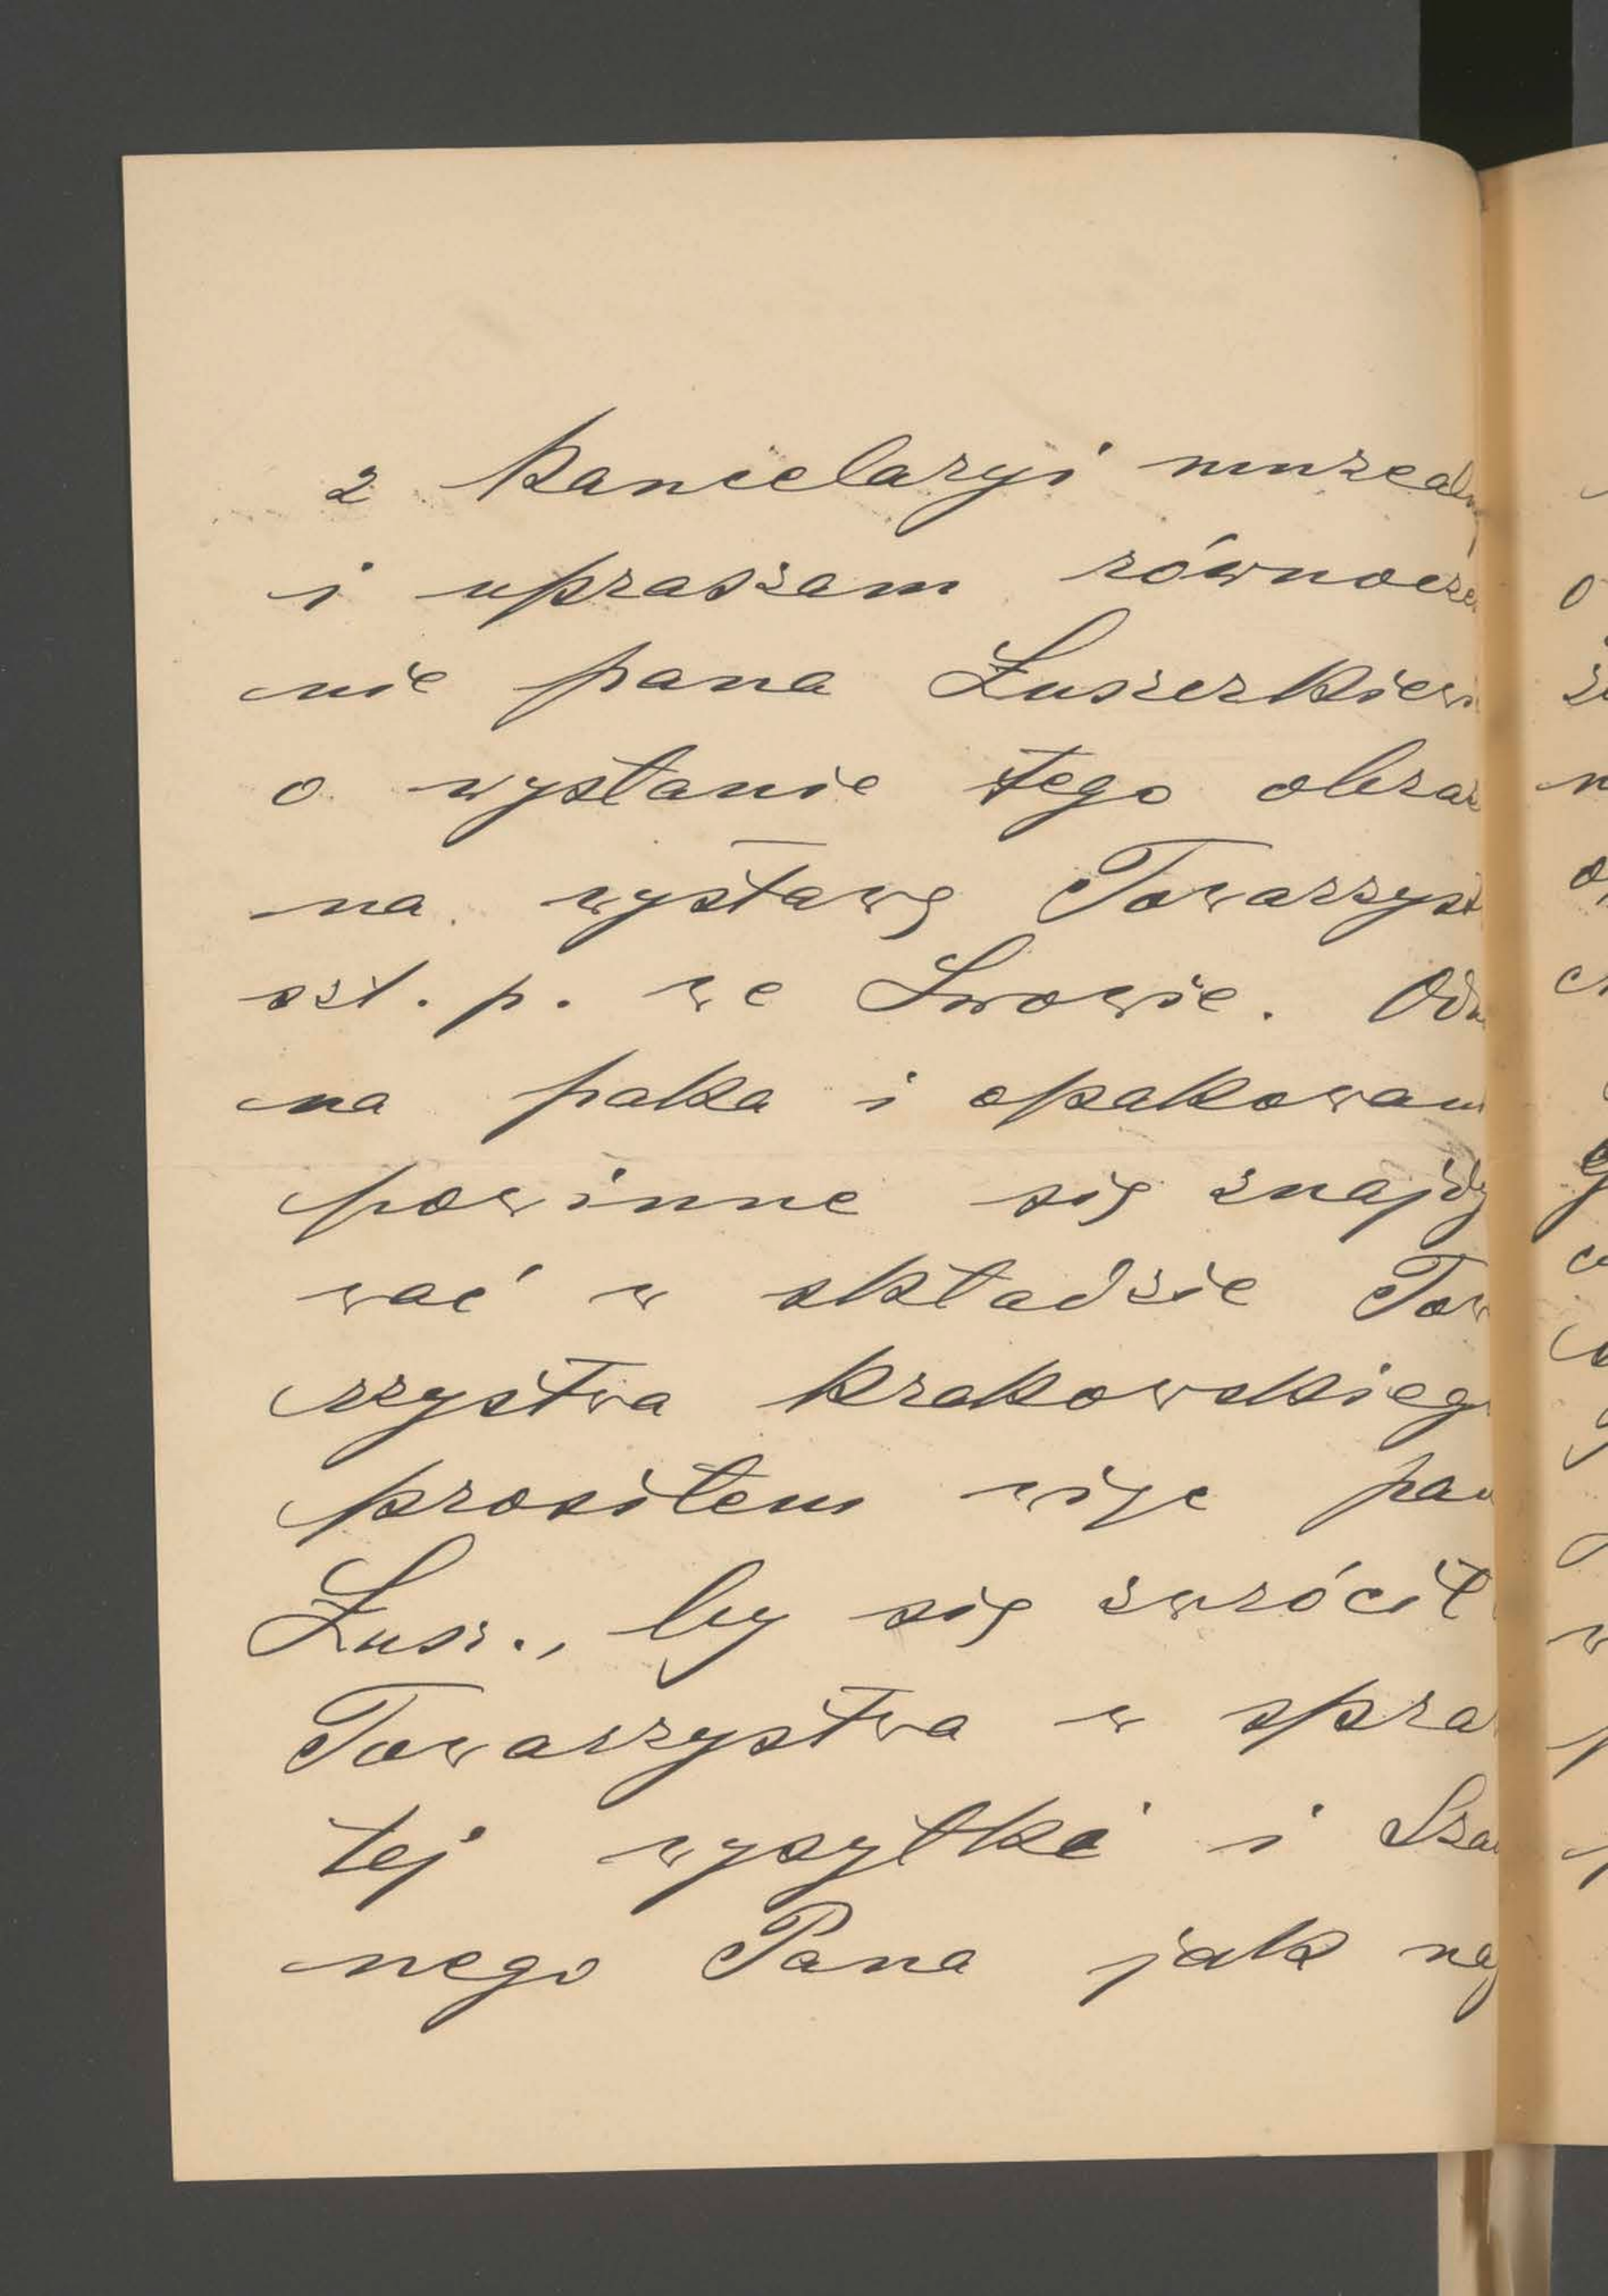 z kancelaryi muzealn
i upraszam równocze
nie pana Łuszczkiewi
o wysłanie tego obraz
na wystawę Towarzyst
szt. p. we Lwowie. Od
na paka i opakowan
powinne się znajdy
wać w składzie Tow
rzystwa krakowskieg
prosiłem więc pan
Łusz., by się zwrócił
Towarzystwa w spra
tej wysyłki i Sza
nego Pana jak naj